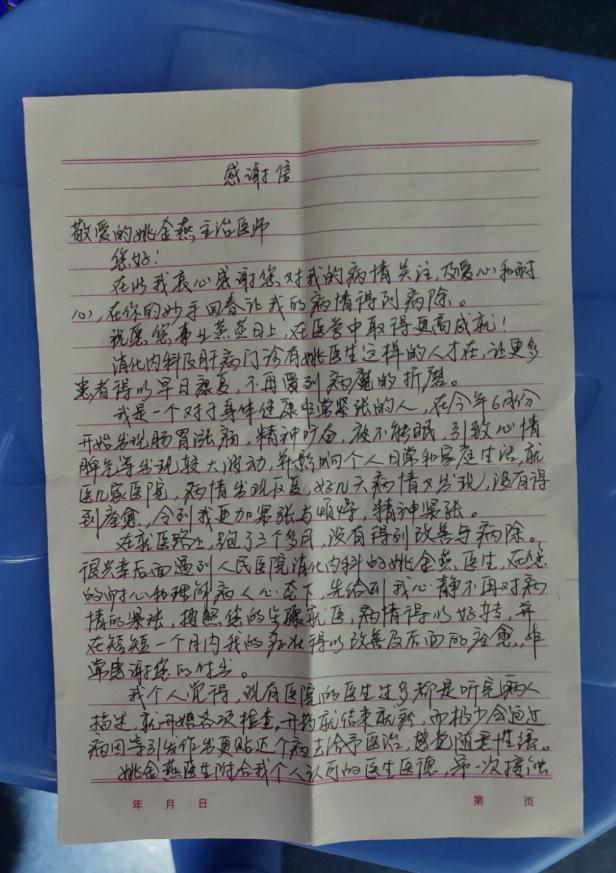 感谢信
敬爱的姚金燕主治医师
您好！
在此我衷心感谢您对我的病情关注及爱心和耐
心，在你的妙手回春让我的病情得到病除。
祝愿您事业蒸蒸日上，在医营中取得更高成就！
消化内科及肝病门诊有姚医生这样的人才在，让更多
患者得以早日康复，不再受到病魔的折磨。
我是一个对于身体健康非常紧张的人，在今年6月份
开始发现肠胃胀病，精神疲备，夜不能眠，引致心情
脾气等出现较大波动，并影响个人日常和家庭生活，就
医几家医院，病情出现反复，好几天病情又出现，没有得
到痊愈，令到我更加紧张与烦燥，精神紧张。
在就医路上，跑了三个多月，没有得到改善与病除。
很幸幸后面遇到人民医院消化内科的姚金燕医生，在您
的耐心和理解病人心态下，先给到我心静不再对病
情的紧张，按照您的步骤就医，病情得以好转，并
在短短一个月内我的症状得以改善及后面的痊愈，非
常感谢您的付出。
我个人觉得，现有医院的医生过多都是听完病人
描述，就开始各项检查，开药就结束就诊，而极少会通过
病因等引发作出更贴近个病去给予医治，感觉随意性强。
姚金燕医生附合我个人认可的医生医德，第一次接触
年 月 日
第 页